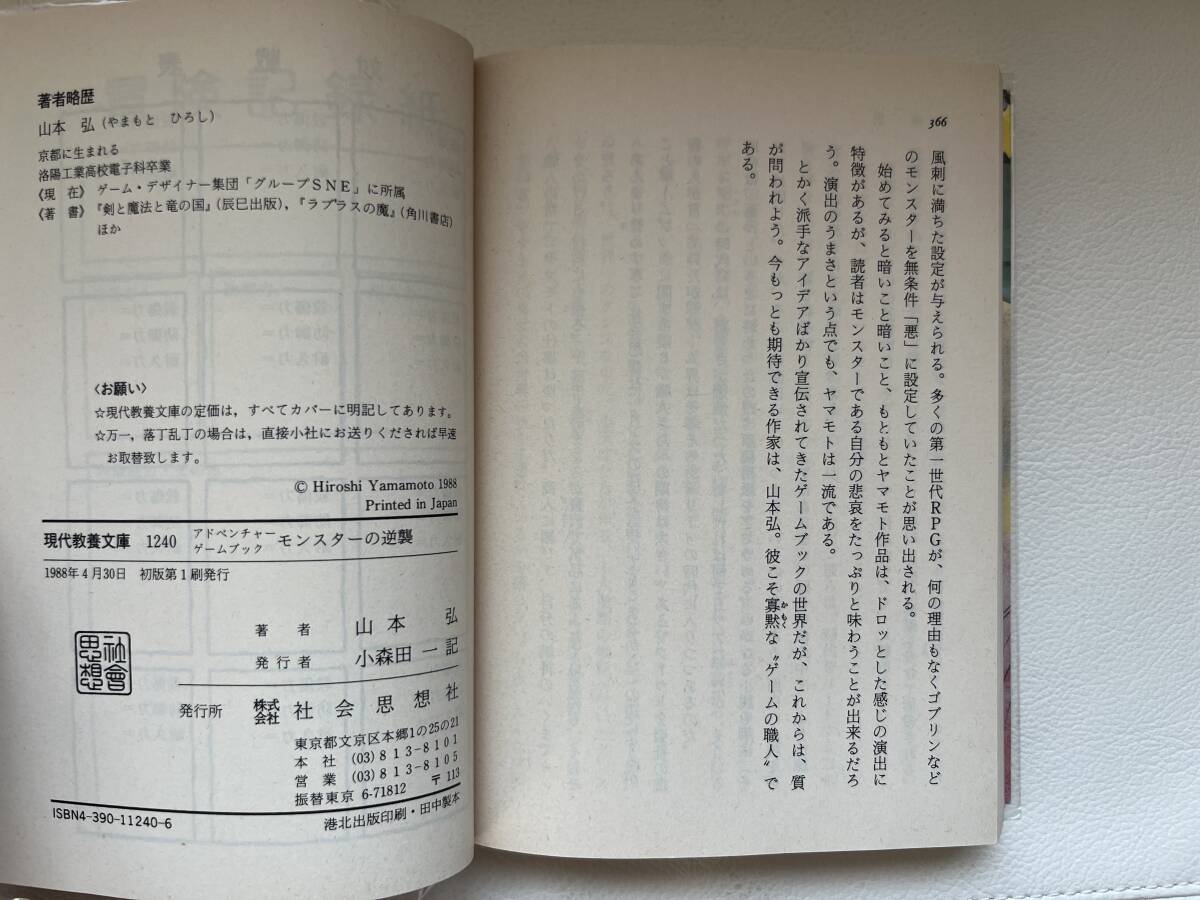 366
風刺に満ちた設定が与えられる。多くの第一世代RPGが、何の理由もなくゴブリンなど
のモンスターを無条件「悪」に設定していたことが思い出される。
始めてみると暗いこと暗いこと、もともとヤマモト作品は、ドロッとした感じの演出に
特徴があるが、読者はモンスターである自分の悲哀をたっぷりと味わうことが出来るだろ
う。演出のうまさという点でも、ヤマモトは一流である。
とかく派手なアイデアばかり宣伝されてきたゲームブックの世界だが、これからは、質
が問われよう。今もっとも期待できる作家は、山本弘。彼こそ寡黙な〝ゲームの職人〟で
かもく
ある。
著者略歴
山本 弘(やまもと ひろし)
京都に生まれる
洛陽工業高校電子科卒業
《現 在》 ゲーム・デザイナー集団「グループSNE」に所属
《著 書》『剣と魔法と竜の国』(辰巳出版),『ラプラスの魔』(角川書店)
ほか
〈お願い〉
☆現代教養文庫の定価は,すべてカバーに明記してあります。
☆万一,落丁乱丁の場合は,直接小社にお送りくだされば早速
お取替致します。
© Hiroshi Yamamoto 1988
Printed in Japan
現代教養文庫 1240 アドベンチャーゲームブック モンスターの逆襲
1988年4月30日 初版第1刷発行
著者 山本 弘
発行者 小森田一記
社會思想
発行所 株式会社 社会思想社
東京都文京区本郷1の25の21
本社 (03)813-8101
営業 (03)813-8105
振替東京 6-71812 〒113
ISBN4-390-11240-6 港北出版印刷・田中製本